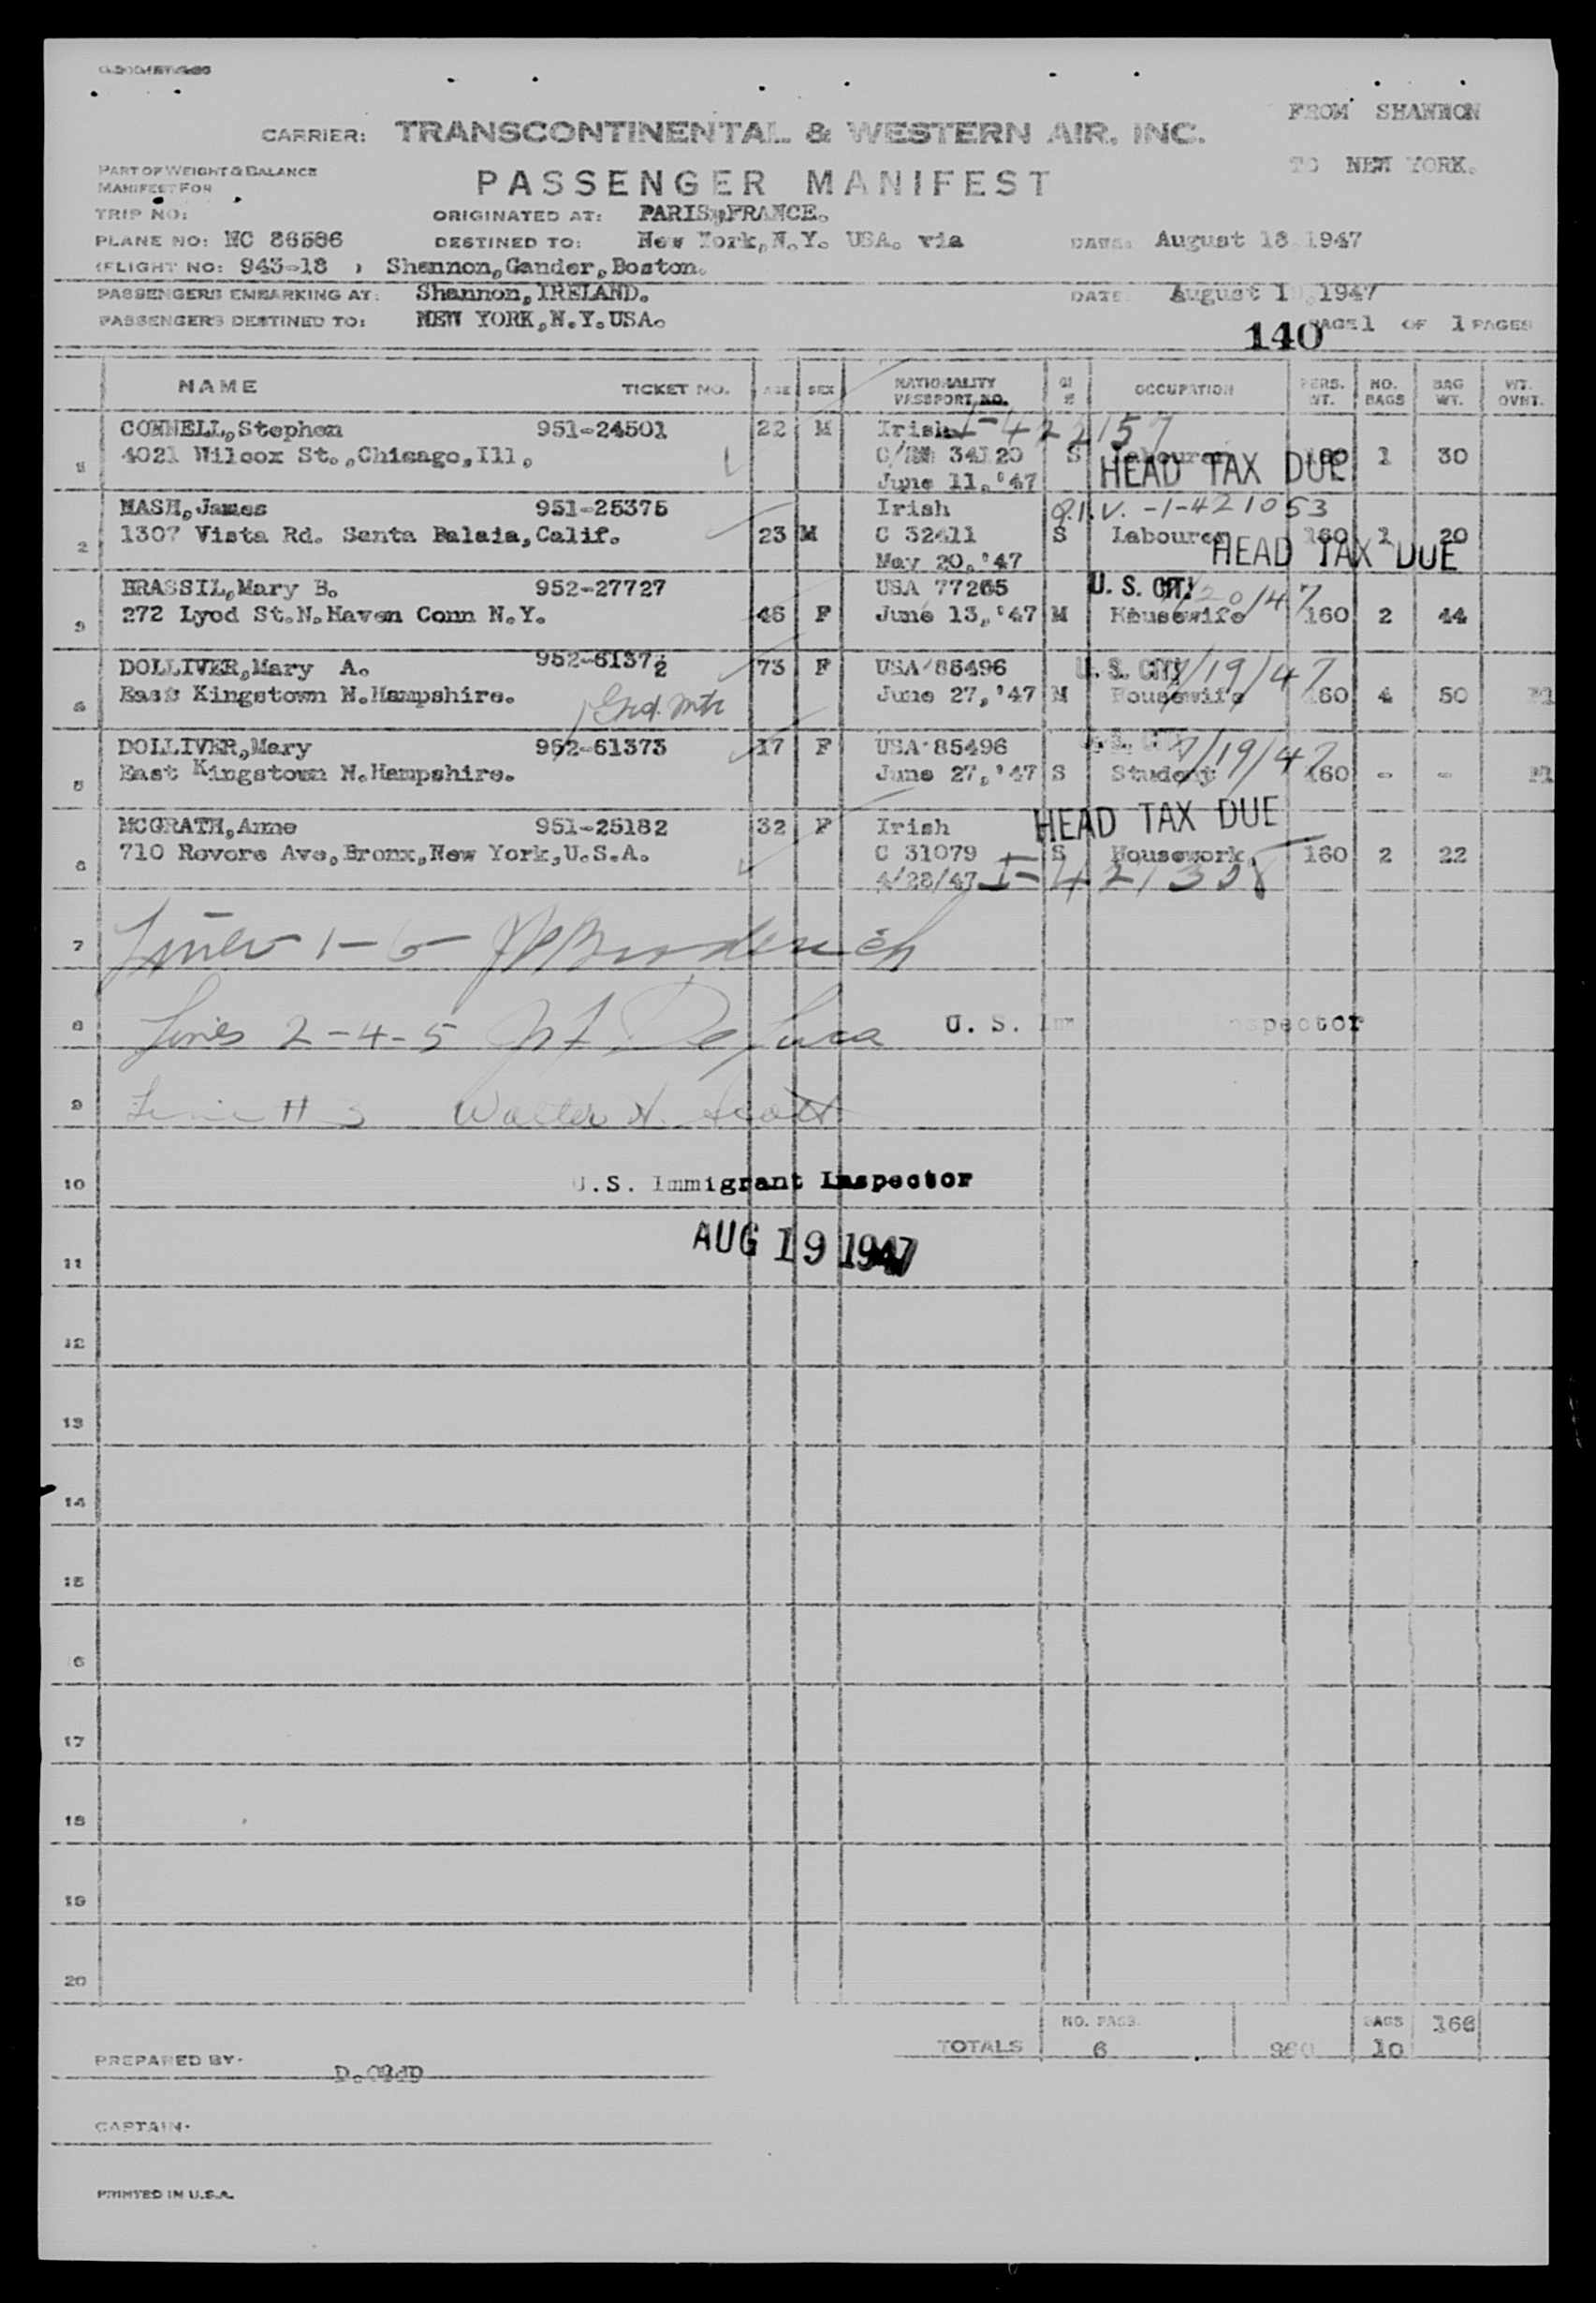 FROM SHANNON
CARRIER: TRANSCONTINENTAL & WESTERN AIR, INC.
TO NEW YORK.
PART OF WEIGHT & BALANCE
MANIFEST FOR
PASSENGER MANIFEST
TRIP NO: ORIGINATED AT: PARIS, FRANCE.
PLANE NO: NC 86586 DESTINED TO: New York, N.Y. USA. via DATE: August 18, 1947
(FLIGHT NO: 943-18 ) Shannon, Gander, Boston.
PASSENGERS EMBARKING AT: Shannon, IRELAND. DATE August 1 , 1947
PASSENGERS DESTINED TO: NEW YORK, N.Y. USA.
140 PAGE 1 OF 1 PAGES
NAME TICKET NO. AGE SEX NATIONALITY PASSPORT NO. OCCUPATION PERS. WT. NO. BAGS BAG WT. WT. OVNT.
CONNELL, Stephen 951-24501 22 M Irish I-422157
4021 Wilcox St., Chicago, Ill, 34120 S Labourer 1 30
HEAD TAX DUE
June 11, '47
NASH, James 951-25375 Irish Q.I.V. -1-421053
2 1307 Vista Rd. Santa Balaia, Calif. 23 M C 32411 S Labourer 160 1 20
HEAD TAX DUE
May 20, '47
BRASSIL, Mary B. 952-27727 USA 77265 U. S. CIT. /20/47
3 272 Lyod St. N. Haven Conn N.Y. 46 F June 13, '47 M Housewife 160 2 44
DOLLIVER, Mary A. 952-61372 73 F USA 85496 U. S. CIT 7/19/47
4 East Kingstown N. Hampshire. Grd. Mtr June 27, '47 M Housewife 160 4 50
DOLLIVER, Mary 952-61373 17 F USA 85496 7/19/47
5 East Kingstown N. Hampshire. June 27, '47 S Student 160 - -
HEAD TAX DUE
MCGRATH, Anne 951-25182 32 F Irish
6 710 Revere Ave, Bronx, New York, U.S.A. C 31079 S Housework. 160 2 22
4/28/47 I-421358
7 Lines 1-6
8 Lines 2-4-5 De Luca U. S. Inspector
9 Line # 3 Walter H. Scott
10 U.S. Immigrant Inspector
AUG 19 1947
11
12
13
14
15
16
17
18
19
20
NO. PASS. BAGS 166
TOTALS 6 960 10
PREPARED BY.
CAPTAIN.
PRINTED IN U.S.A.